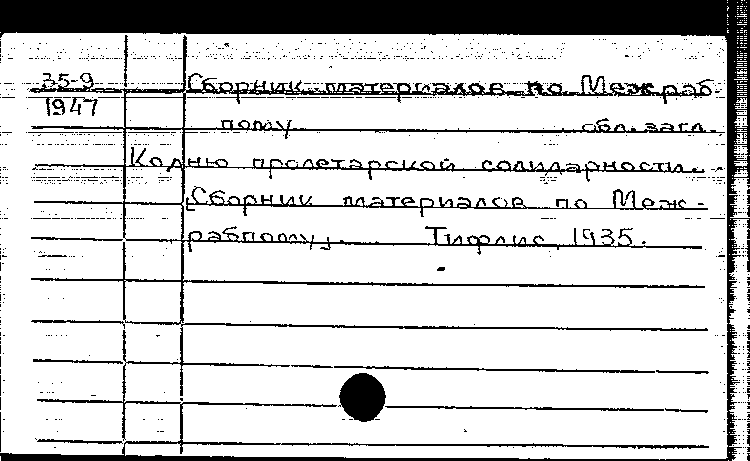 35-9 Сборник материалов по Межраб-
1947 пому обл. загл.
Ко дню пролетарской солидарности.-
[Сборник материалов по Меж-
рабпому]. Тифлис, 1935.